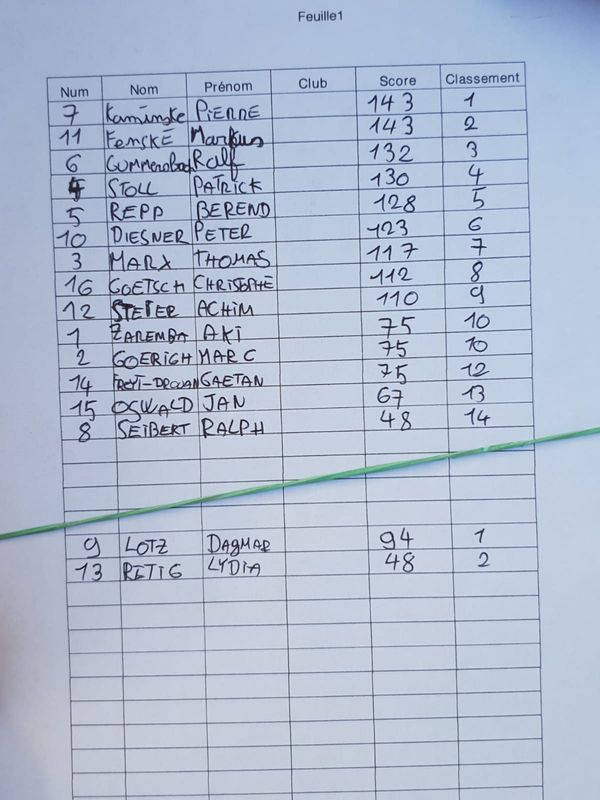 Feuille1
Num Nom Prénom Club Score Classement
7 Kaminske PIERRE 143 1
11 FEMSKE Markus 143 2
6 GUMMERSBACH Ralf 132 3
4 STOLL PATRICK 130 4
5 REPP BEREND 128 5
10 DIESNER PETER 123 6
3 MARX THOMAS 117 7
16 GOETSCH CHRISTOPHE 112 8
12 STEIER ACHIM 110 9
1 ZAREMBA AKI 75 10
2 GOERICH MARC 75 10
14 GAETAN 75 12
15 OSWALD JAN 67 13
8 SEIBERT RALPH 48 14
9 LOTZ DAGMAR 94 1
13 RETIG LYDIA 48 2